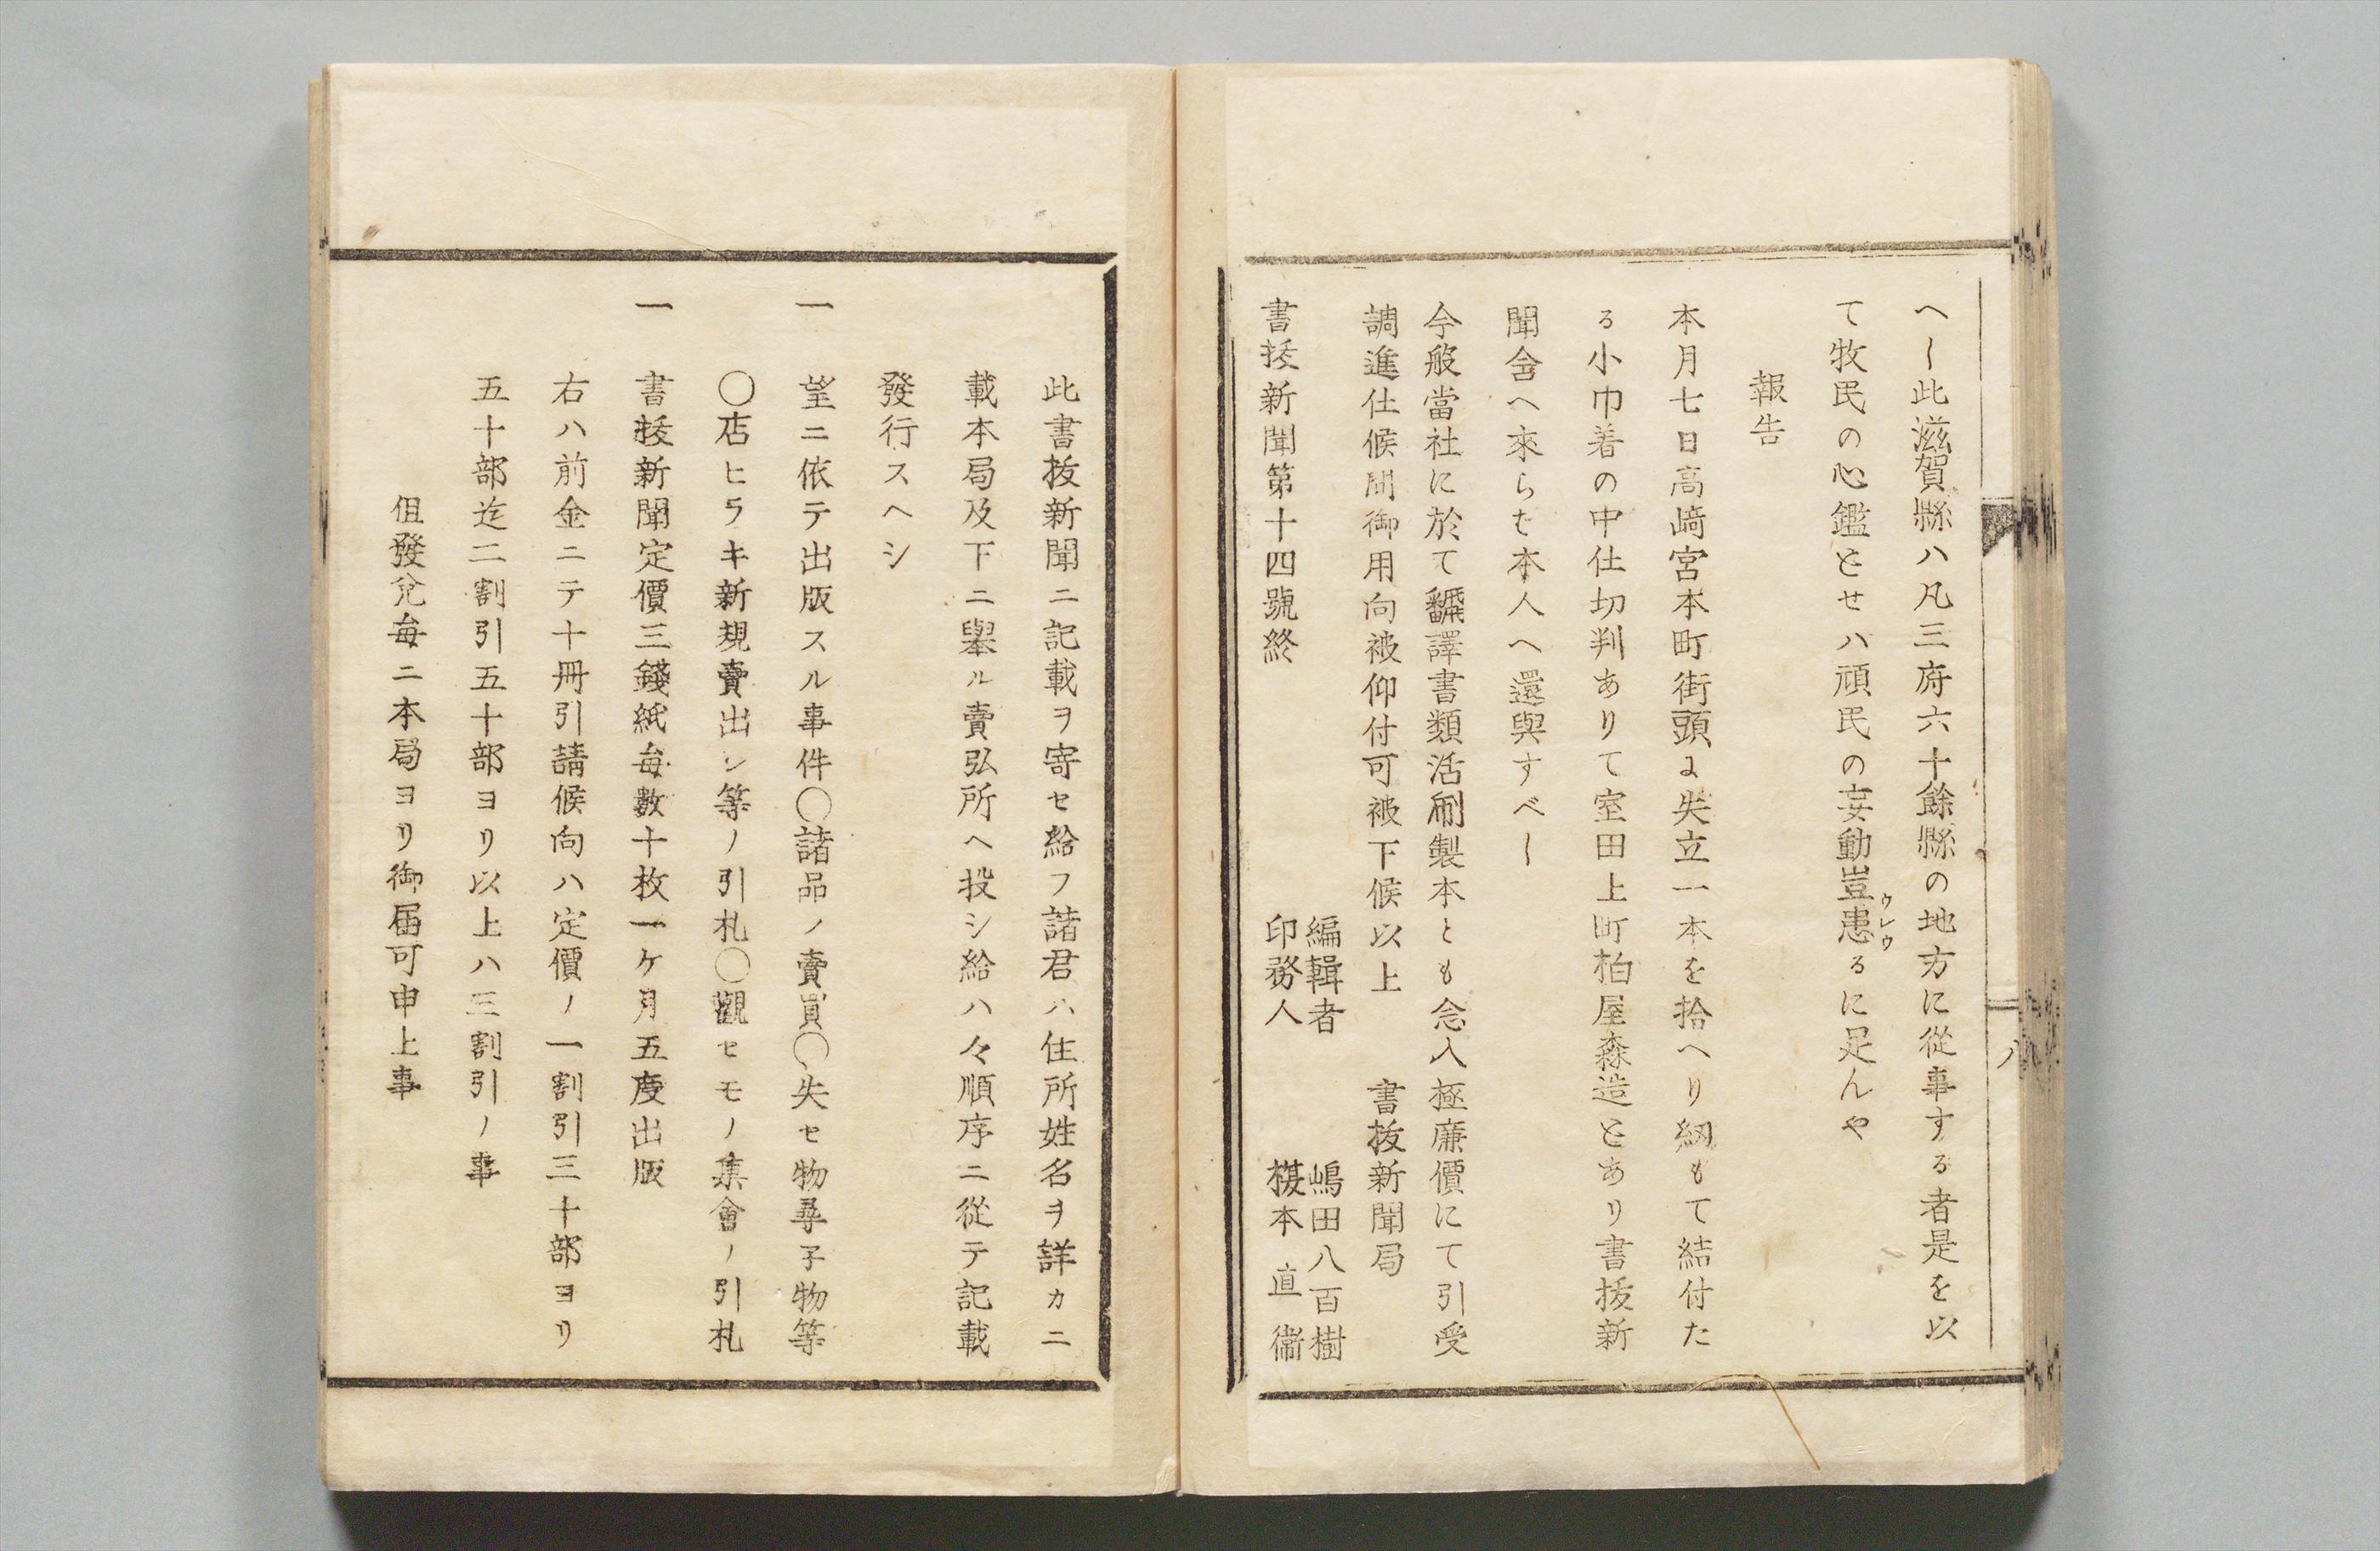 へし此滋賀縣ハ凡三府六十餘縣の地方に從事する者是を以
て牧民の心鑑とせハ頑民の妄動豈患るに足んや
ウレウ
報告
本月七日高﨑宮本町街頭に失立一本を拾へり紐もて結付た
る小巾着の中仕切判ありて室田上町柏屋森造とあり書抜新
聞會へ來らむ本人へ還與すべし
今般當社に於て飜譯書類活刷製本とも念入極廉價にて引受
調進仕候間御用向被仰付可被下候以上　書抜新聞局
書抜新聞第十四號終
編輯者　嶋田八百樹
印務人　榎本直衞
八
此書抜新聞ニ記載ヲ寄セ給フ諸君ハ住所姓名ヲ詳カニ
載本局及下ニ舉ル賣弘所ヘ投シ給ハ々順序ニ從テ記載
發行スヘシ
一　望ニ依テ出版スル事件〇諸品ノ賣買〇失セ物尋子物等
〇店ヒラキ新規賣出シ等ノ引札〇觀セモノ集會ノ引札
一　書抜新聞定價三錢紙每數十枚一ケ月五度出版
右ハ前金ニテ十冊引請候向ハ定價ノ一割引三十部ヨリ
五十部迄二割引五十部ヨリ以上ハ三割引ノ事
但發兌每ニ本局ヨリ御届可申上事